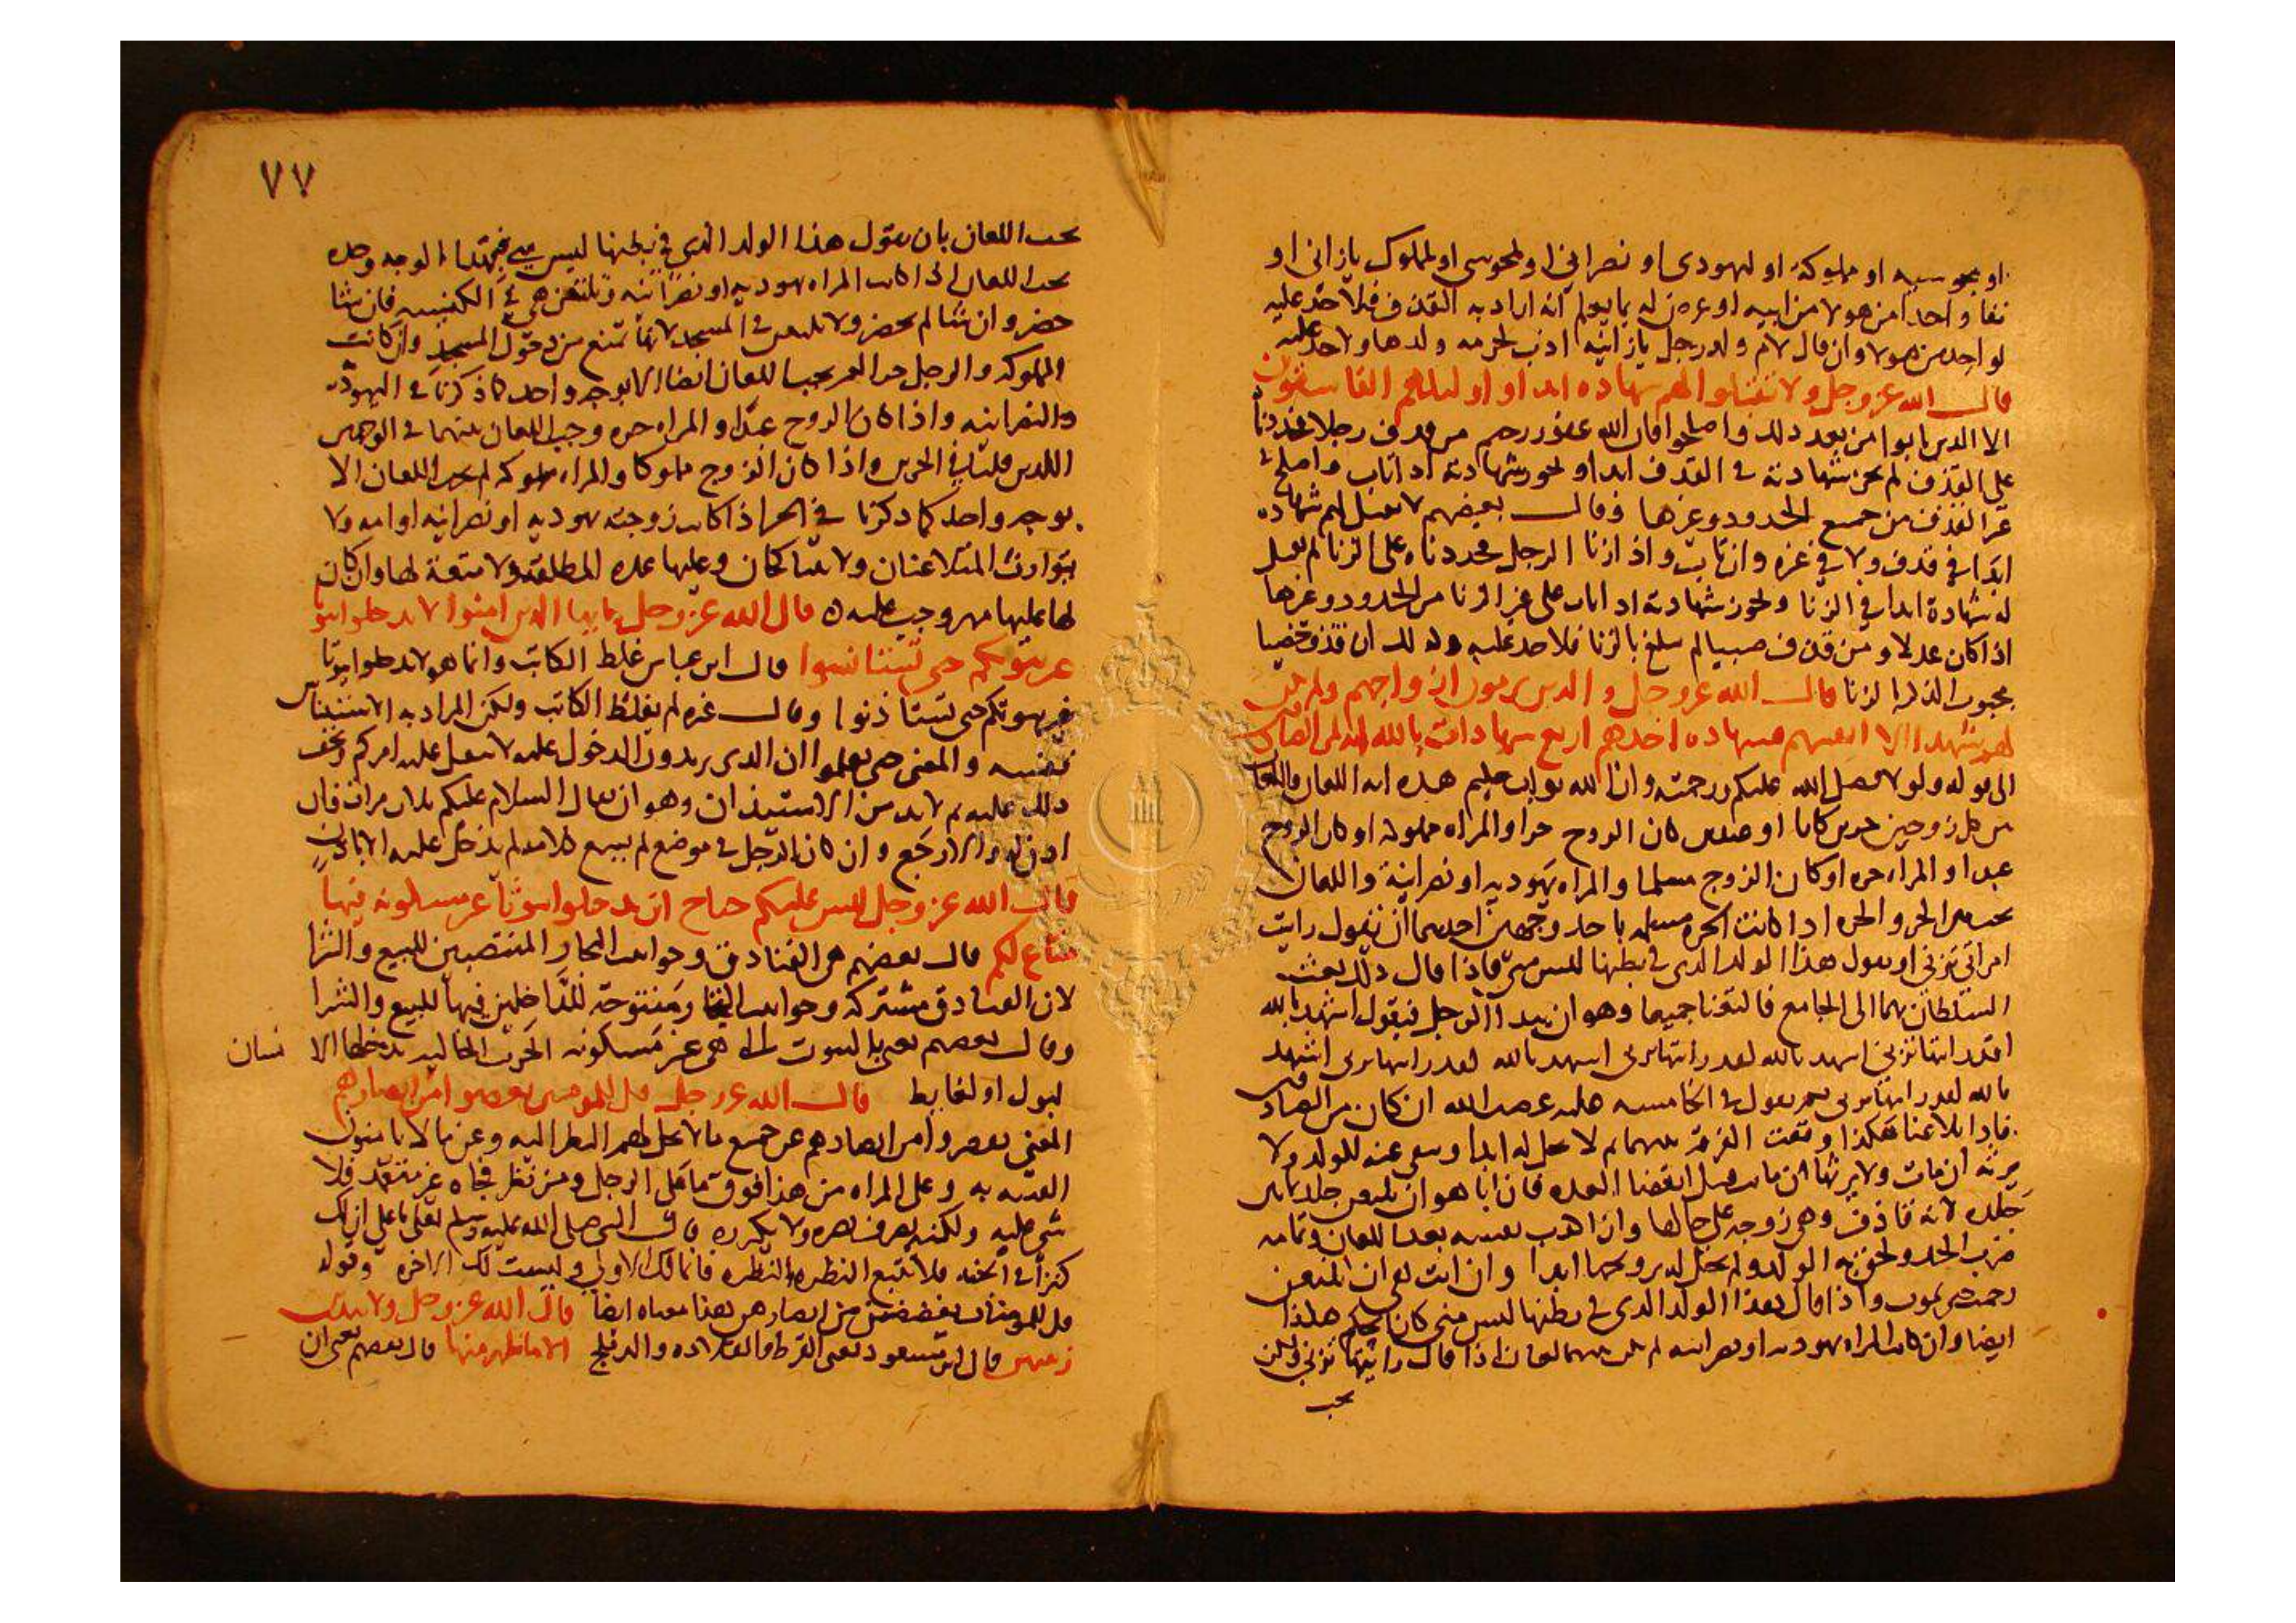 او مجوسيه او مملوكة او ليهودى او نصراني او لمجوسى او لمملوك يازانى او
نفا واحدا من هولا من ابيه او عرض له بما يعلم انه اراد به القذف فلا حد عليه
لواحد من هولا وان قال لام ولد رجل يازانيه ادب لحرمه ولدها ولا حد عليه
قال الله عز وجل ولا تقبلوا لهم شهاده ابدا واوليك هم الفاسقون
الا الدين تابوا من بعد دلك واصلحوا فان الله غفور رحيم من قدف رجلا فحددناه
على القذف لم تجز شهادته فى القدف ابدا وتجوز شهادته اذا تاب واصلح فى
غير القذف من جميع الحدود وغيرها وقال بعضهم لا تقبل لهم شهاده
ابدا في قدف ولا في غيره وان تاب واذا زنا الرجل فحددناه على الزنا لم تقبل
له شهادة ابدا في الزنا وتجوز شهادته اذا تاب على غير الزنا من الحدود وغيرها
اذا كان عدلا ومن قذف صبيا لم يبلغ بالزنا فلا حد عليه وكذلك ان قذف خصيا
مجبوب الذكر بالزنا قال الله عز وجل والدين يرمون ازواجهم ولم يكن
لهم شهدا الا انفسهم فشهاده احدهم اربع شهادات بالله انه لمن الصادقين
الى قوله ولولا فضل الله عليكم ورحمته وان الله تواب حكيم هذه ايه اللعان واللعان
بين كل زوجين حرين كانا او عبدين كان الزوج حرا والمراه مملوكه او كان الزوج
عبدا والمراه حره او كان الزوج مسلما والمراه يهوديه او نصرانية واللعان
يجب بين الحر والحره اذا كانت الحره مسلمه باحد وجهين احدهما ان يقول رايت
امراتى تزنى او يقول هذا الولد الدى فى بطنها ليس منى فاذا قال ذلك بعث
السلطان بهما الى الجامع فالتعنا جميعا وهو ان يبدا الرجل فيقول اشهد بالله
لقد رايتها تزنى اشهد بالله لقد رايتها تزنى اشهد بالله لقد رايتها تزنى اشهد
بالله لقد رايتها تزنى ثم يقول فى الخامسه عليه غضب الله ان كان من الصادقين
فاذا تلاعنا هكذا وقعت الفرقه بينهما ثم لا تحل له ابدا ونفى عنه الولد ولا
يرثه ان مات ولا يرثها ان ماتت قبل انقضا العده فان ابا هو ان يلتعن جلد ثمانين
جلده لانه قاذف وهى زوجه على حالها وان اكذب نفسه بعد اللعان وتمامه
ضرب الحد ولحق به الولد ولم تحل له يزوجها ابدا وان ابت هى ان تلتعن
رجمت حتى تموت واذا قال هذا الولد الدى فى بطنها ليس منى كان الحكم هكذا
ايضا وان كانت المراه يهوديه او نصرانيه لم يكن بينهما لعان اذا قال رايتها تزنى ولكن
يجب
٧٧
يجب اللعان بان يقول هذا الولد الذى فى بطنها ليس منى فبهذا الوجه وحده
يجب اللعان اذا كانت المراه يهوديه او نصرانيه وتلتعن هى فى الكنيسه فان شا
حضر وان شا لم يحضر ولا تلتعن فى المسجد لانها تمنع من دخول المسجد وان كانت
المملوكه والرجل حر لم يجب اللعان ايضا الا بوجه واحد كما ذكرنا فى اليهوديه
والنصرانيه واذا كان الزوج عبدا والمراه حره وجب اللعان بينهما فى الوجهين
اللدين قلنا في الحرين واذا كان الزوج مملوكا والمراه مملوكه لم يجب اللعان الا
بوجه واحد كما ذكرنا في الحر اذا كانت زوجته يهوديه او نصرانيه او امه ولا
يتوارث المتلاعنان ولا يتناكحان وعليها عده المطلقه ولا متعة لها وان كان
لها عليها مهر وجب عليه قال الله عز وجل يا ايها الدين امنوا لا تدخلوا بيوتا
غير بيوتكم حتى تستانسوا قال ابن عباس غلط الكاتب وانما هو لا تدخلوا بيوتا
غير بيوتكم حتى تستاذنوا وقال غيره لم يغلط الكاتب ولكن المراد به الاستيناس
نفسه والمعنى حتى تعلموا ان الدى يريدون الدخول عليه لا يثقل عليه امركم ويخف
دلك عليه ثم لا بد من الاستيذان وهو ان يقال السلام عليكم ثلاث مرات فان
اذن له والا رجع وان كان الرجل فى موضع لم يسمع كلامه لم يدخل عليه الا باذن
قال الله عز وجل ليس عليكم جناح ان تدخلوا بيوتا غير مسكونه فيها
متاع لكم قال بعضهم هى الفنادق وحوانيت التجار المنتصبين للبيع والشرا
لان الفنادق مشتركه وحوانيت التجار مفتوحة للداخلين فيها للبيع والشرا
وقال بعضهم يعنى بالبيوت التى هى غير مسكونه الخرب الخاليه يدخلها الانسان
لبول او لغايط قال الله عز وجل قل للمومنين يغضوا من ابصارهم
المعنى يغضوا من ابصارهم عن جميع ما لا يحل لهم النظر اليه وعن ما لا يامنون
الفتنه به وعلى المراه من هذا فوق ما على الرجل ومن نظر فجاه غير متعمد فلا
شى عليه ولكنه يصرف بصره ولا يكرره قال النبى صلى الله عليه وسلم لعلى يا على ان لك
كنزا فى الجنه فلا تتبع النظره النظره فانما لك الاولى وليست لك الاخره وقوله
قل للمومنات يغضضن من ابصارهن هذا معناه ايضا قال الله عز وجل ولا يبدين
زينتهن قال ابن مسعود يعنى القرط والقلاده والدملج الا ما ظهر منها قال بعضهم يعنى ان